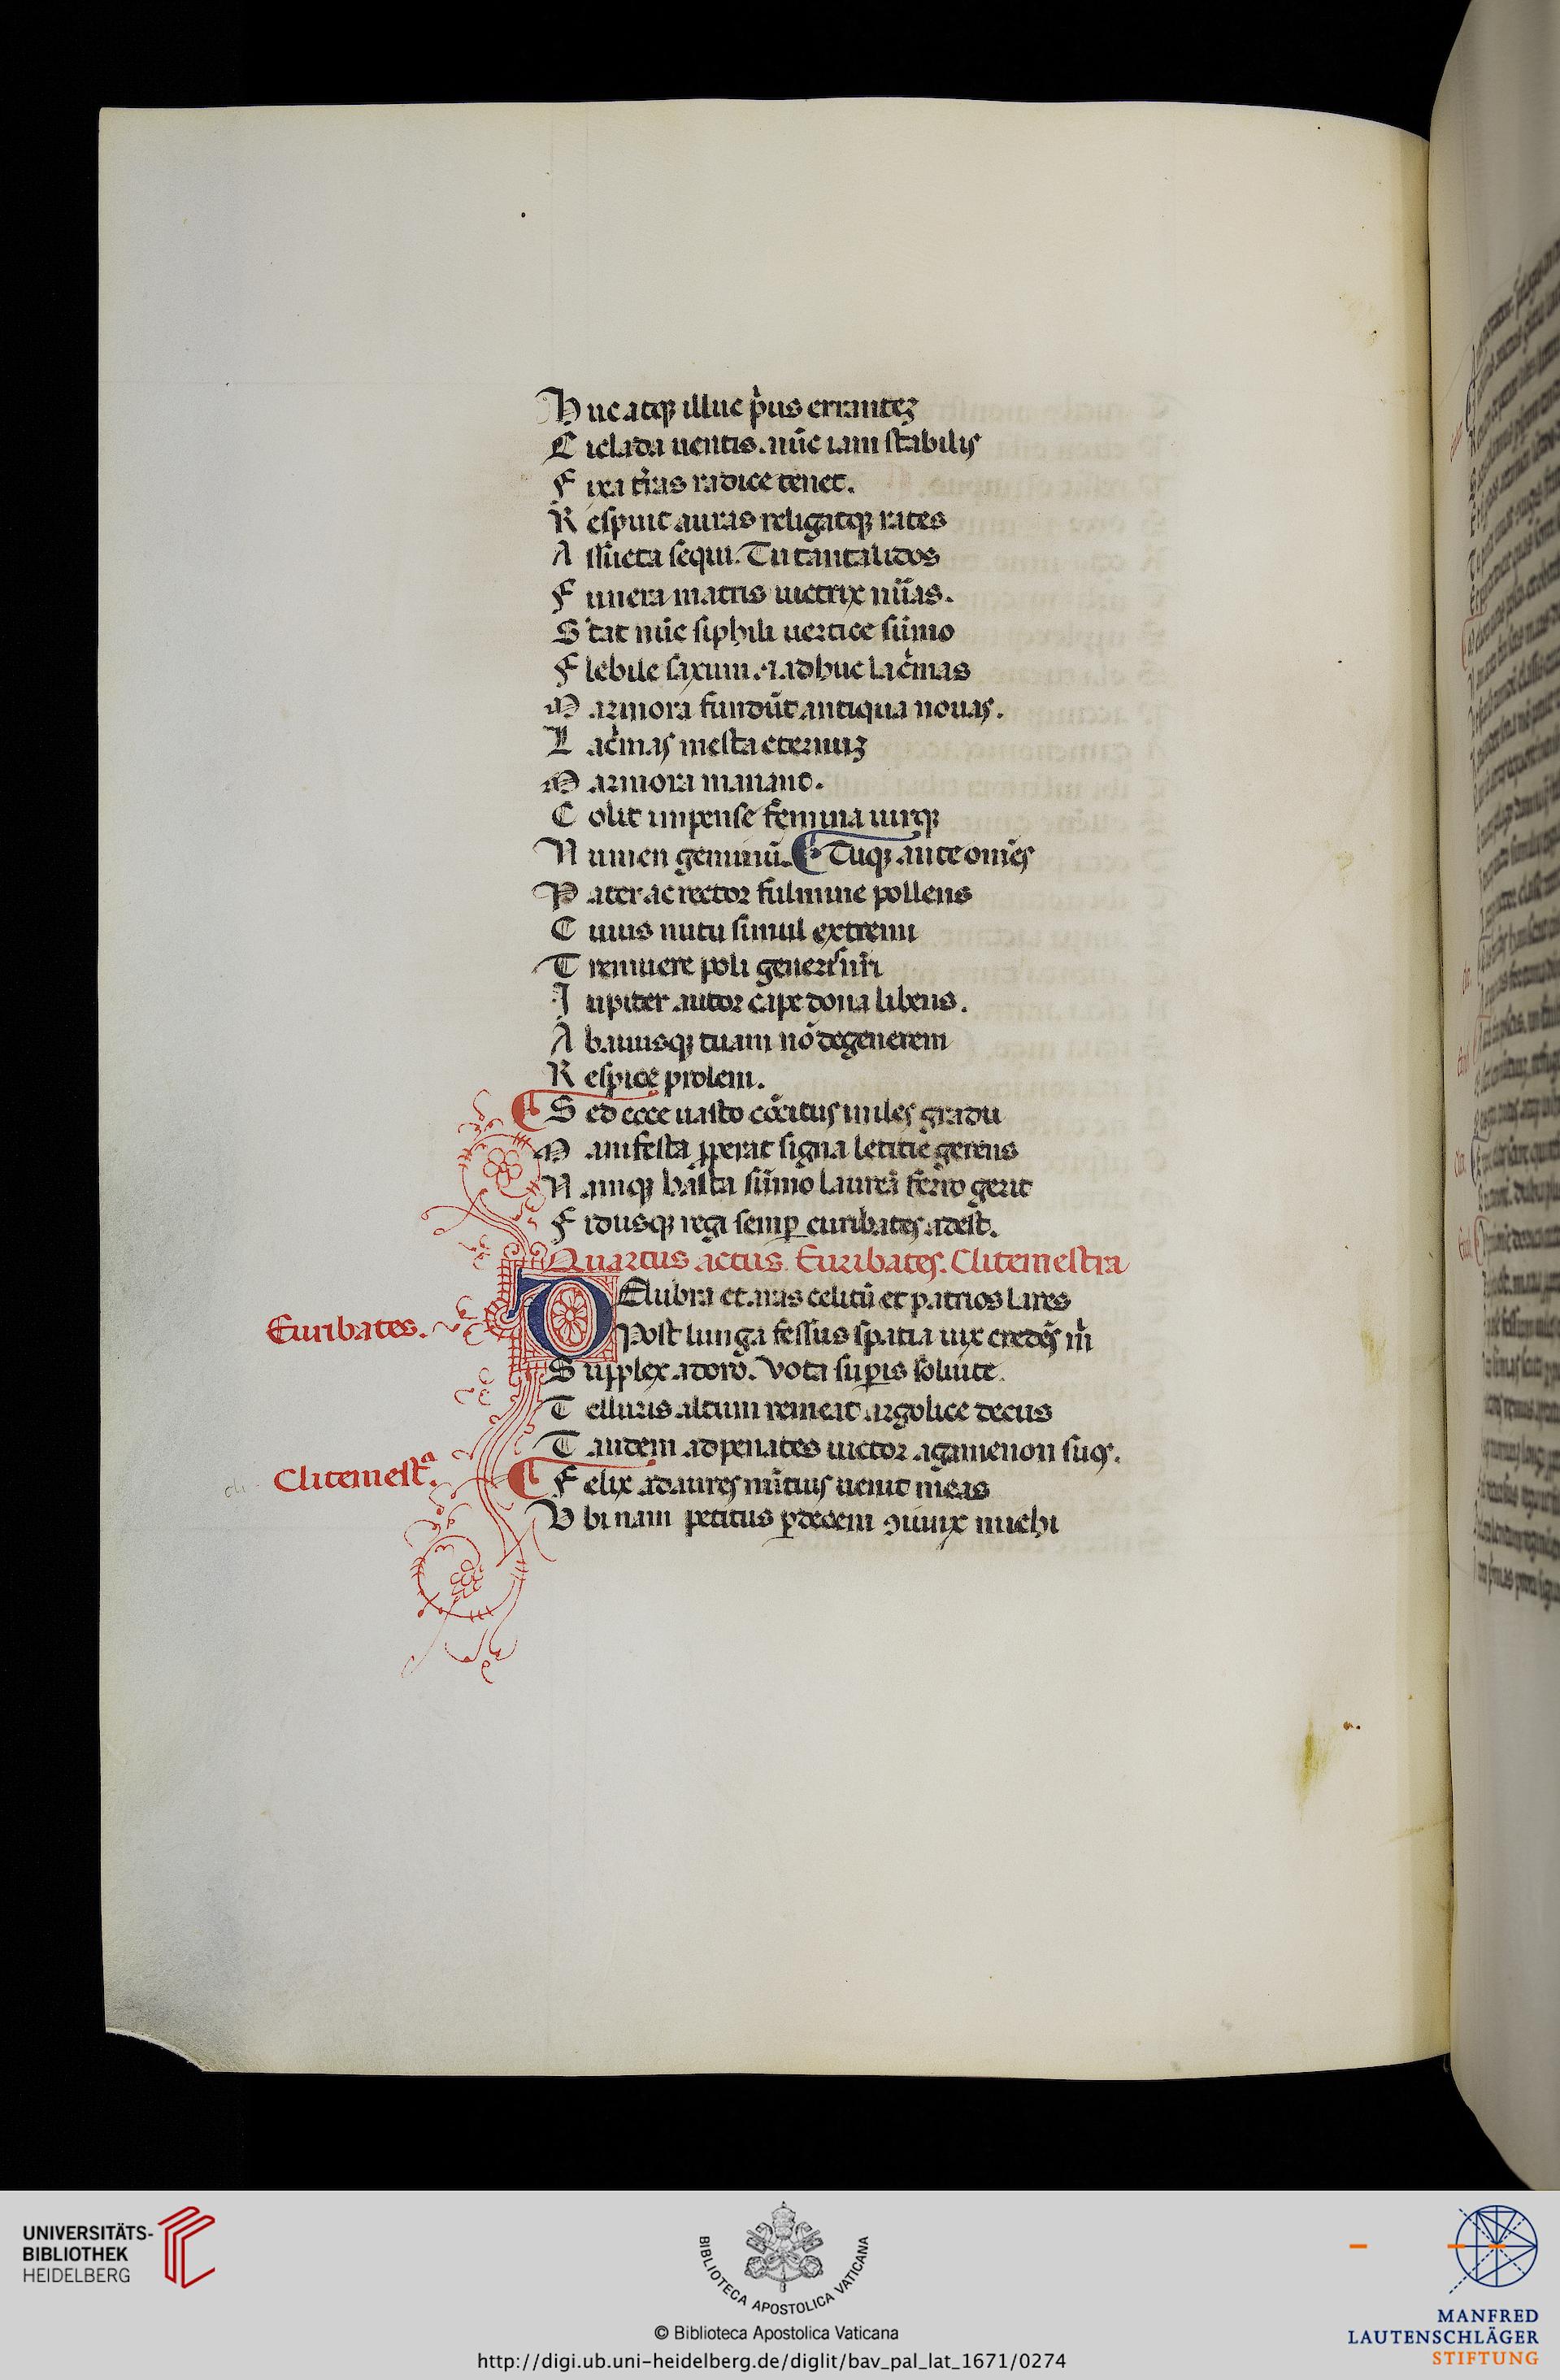 Huc atq; illuc p̾us errantez
Ciclada uentis. nūc iam stabilis
Fixa t̾ras radice tenet.
Respuit auras religatq; rates
Assueta sequi. Tu tantalidos
Funera matris uictrix nūas.
Stat nūc siphili uertice sūmo
Flebile saxum. ⁊ adhuc lac̾mas
Marmora fundūt antiqua nouas.
Lac̾mas mesta eternuz
Marmora manant.
Colit impense femina uirq;
Numen geminū. Tuq; ante om̄es
Pater ac rector fulmine pollens
Cuius nutu simul extremi
Tremuere poli gener̾ n̄ri
Iupiter autor cape dona libens.
Abauusq; tuam nō degenerem
Respice prolem.
Sed ecce uasto cōcitus miles gradu
Manifesta ꝓperat signa letitie gerens
Namq; hasta sūmo laureā ferro gerit
Fidusq; regi semꝑ euribates adest.
Quartus actus. Euribates. Clitemestra
DElubra et aras celitū et patrios lares
Euribates.
Post lunga fessus spatia uix credēs m̾
Supplex adoro. Vota suꝑis soluite.
Telluris altum remeat argolice decus
Tandem ad penates uictor agamenon suos.
Clitemestᵃ.
Felix ad aures nūtius uenit meas
Vbi nam petitus ꝑ decem ꝯiunx michi
UNIVERSITÄTS-
BIBLIOTHEK
HEIDELBERG
BIBLIOTECA APOSTOLICA VATICANA
© Biblioteca Apostolica Vaticana
http://digi.ub.uni-heidelberg.de/diglit/bav_pal_lat_1671/0274
MANFRED
LAUTENSCHLÄGER
STIFTUNG